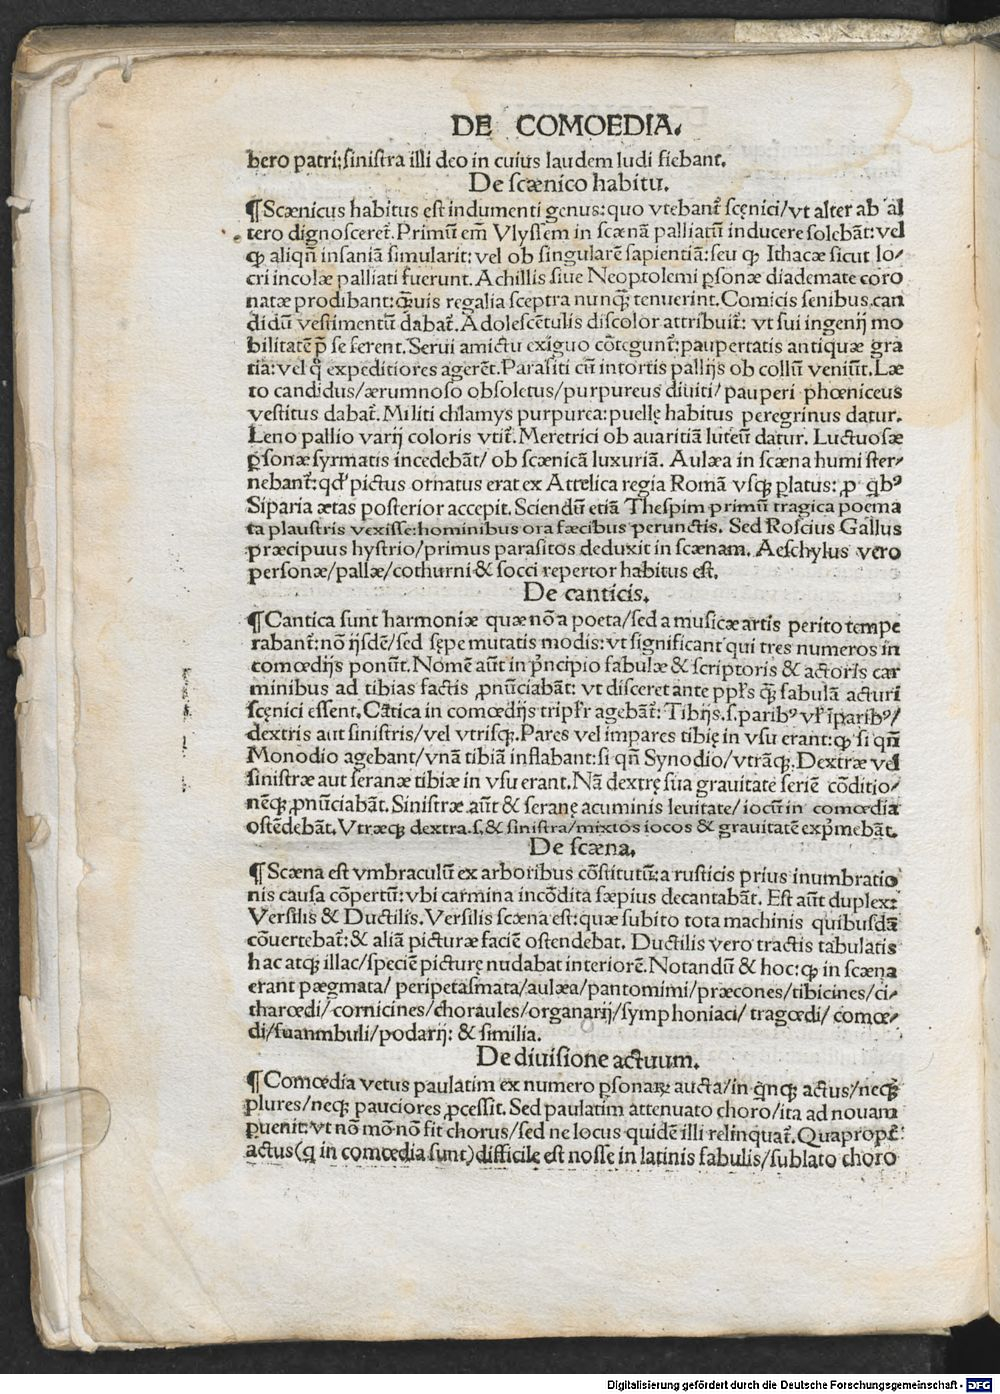 DE COMOEDIA.
bero patri:sinistra illi deo in cuius laudem ludi fiebant.
De scænico habitu.
¶Scænicus habitus est indumenti genus:quo vtebant̃ scęnici/vt alter ab al
tero dignosceret̃.Primũ em̃ Vlyssem in scænã palliatũ inducere solebãt:vel
ꝙ aliqñ insaniã simularit:vel ob singularẽ sapientiã:seu ꝙ Ithacæ sicut lo/
cri incolæ palliati fuerunt.Achillis siue Neoptolemi ꝑsonæ diademate coro
natæ prodibant:ꝗ̃uis regalia sceptra nunꝗ̃ tenuerint.Comicis senibus can
didũ vestimentũ dabat̃.Adolescẽtulis discolor attribuit̃: vt sui ingenij mo
bilitatẽ p̃ se ferent.Serui amictu exiguo cõtegunt̃:paupertatis antiquæ gra
tia:vel ꝙ̃ expeditiores agerẽt.Parasiti cũ intortis pallijs ob collũ veniũt.Læ
to candidus/ærumnoso obsoletus/purpureus diuiti/pauperi phœniceus
vestitus dabat̃.Militi chlamys purpurea:puellę habitus peregrinus datur.
Leno pallio varij coloris vtit̃.Meretrici ob auaritiã luteũ datur. Luctuosæ
ꝑsonæ syrmatis incedebãt/ ob scænicã luxuriã. Aulæa in scæna humi ster/
nebant̃:qď pictus ornatus erat ex Attelica regia Romã vsqꝫ ꝑlatus: ꝓ q̃bꝰ
Siparia ætas posterior accepit.Sciendũ etiã Thespim primũ tragica poema
ta plaustris vexisse:hominibus ora fæcibus perunctis. Sed Roscius Gallus
præcipuus hystrio/primus parasitos deduxit in scænam. Aeschylus vero
personæ/pallæ/cothurni & socci repertor habitus est.
De canticis.
¶Cantica sunt harmoniæ quæ nõ a poeta/sed a musicæ artis perito tempe
rabant̃:nõ ijsdẽ/sed sępe mutatis modis:vt significant qui tres numeros in
comœdijs ponũt.Nomẽ aũt in p̃ncipio fabulæ & scriptoris & actoris car
minibus ad tibias factis ꝓnũciabãt: vt disceret ante ppl̃s ꝗ̃ fabulã acturi
scęnici essent.Cãtica in comœdijs tripl̃r agebãt̃: Tibijs.s.paribꝰ vl̃ ĩparibꝰ/
dextris aut sinistris/vel vtrisqꝫ.Pares vel impares tibię in vsu erant:ꝙ si qñ
Monodio agebant/vnã tibiã inflabant:si qñ Synodio/vtrãqꝫ.Dextræ vel
sinistræ aut seranæ tibiæ in vsu erant.Nã dextrę sua grauitate seriẽ cõditio/
nẽqꝫ ꝓnũciabãt.Sinistræ.aũt & seranę acuminis leuitate/iocũ in comœdia
ostẽdebãt.Vtræqꝫ dextra.s.& sinistra/mixtos iocos & grauitatẽ exp̃mebãt.
De scæna.
¶Scæna est vmbraculũ ex arboribus cõstitutũ:a rusticis prius inumbratio
nis causa cõpertũ:vbi carmina incõdita sæpius decantabãt. Est aũt duplex:
Versilis & Ductilis.Versilis scæna est:quæ subito tota machinis quibusdã
cõuertebat̃:& aliã picturæ faciẽ ostendebat. Ductilis vero tractis tabulatis
hac atqꝫ illac/speciẽ picturę nudabat interiorẽ.Notandũ & hoc:ꝙ in scæna
erant pægmata/ peripetasmata/aulæa/pantomimi/præcones/tibicines/ci/
tharœdi/cornicines/choraules/organarij/symphoniaci/ tragœdi/ comœ/
di/fuanmbuli/podarij: & similia.
De diuisione actuum.
¶Comœdia vetus paulatim ex numero ꝑsonaꝝ aucta/in q̃nqꝫ actus/neqꝫ
plures/neqꝫ pauciores ꝓcessit. Sed paulatim attenuato choro/ita ad nouam
ꝑuenit:vt nõ mõ nõ fit chorus/sed ne locus quidẽ illi relinquat̃.Quapropt̃:
actus(q̃ in comœdia sunt)difficile est nosse in latinis fabulis/sublato choro
Digitalisierung gefördert durch die Deutsche Forschungsgemeinschaft - DFG